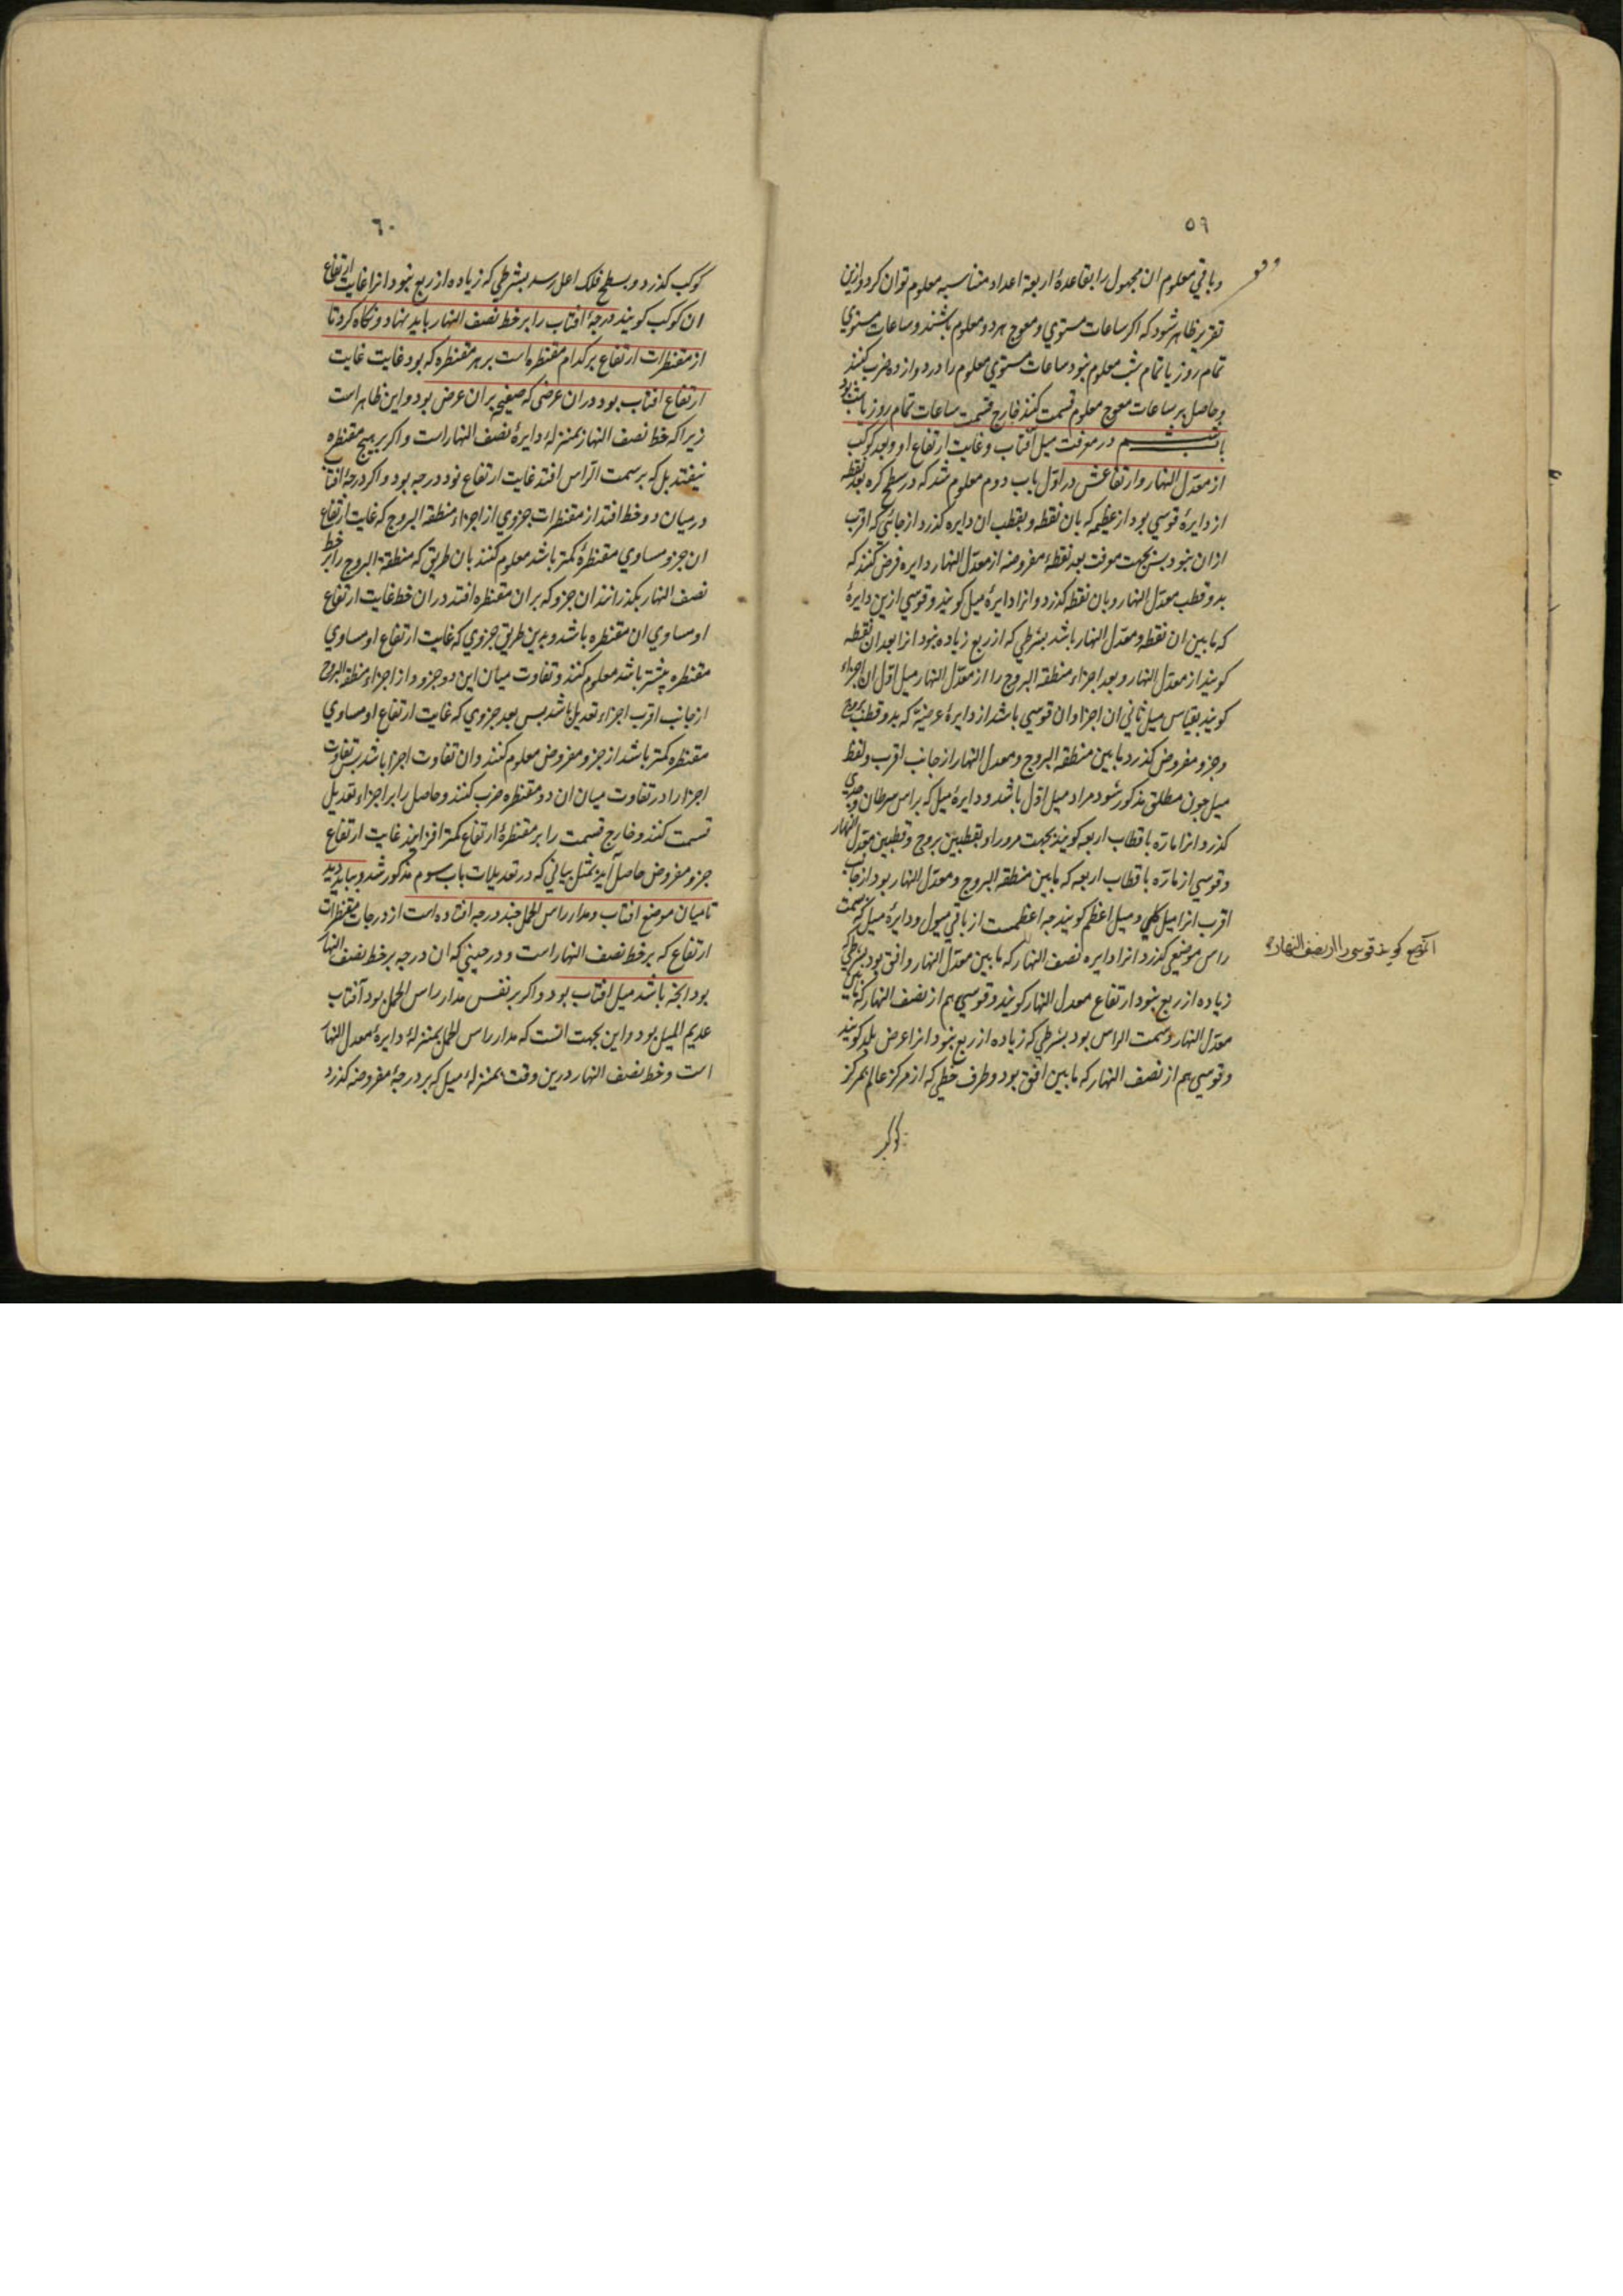 ٥٩
و باقي معلوم ان مجهول را بقاعدۀ اربعۀ اعداد متناسبه معلوم توان کرد و ازین
تقریر ظاهر شود که اکر ساعات مستوي و معوج هر دو معلوم باشند و ساعات مستوي
تمام روز یا تمام شب معلوم نبود ساعات مستوي معلوم را در دوازده ضرب کنند
و حاصل بر ساعات معوج معلوم قسمت کنند خارج قسمت ساعات تمام روز یا شب بود
در معرفت میل آفتاب و غایت ارتفاع او و بعد کوکب
از معدّل النهار و ارتفاعش در اوّل باب دوم معلوم شد که در سطح کره بعد نقطه
از دایرۀ قوسي بود از عظیمه که بان نقطه و بقطب ان دایره کذرد از جانبي که اقرب
ازان نبود پس بجهت معرفت بعد نقطۀ مفروضه از معدّل النهار دایره فرض کنند که
بدو قطب معدّل النهار و بان نقطه کذرد و انرا دایرۀ میل کویند و قوسي ازین دایرۀ
که مابین ان نقطه و معدّل النهار باشد بشرطي که از ربع زیاده نبود انرا بعد ان نقطه
کویند از معدّل النهار و بعد اجزاء منطقة البروج را از معدّل النهار میل اوّل ان اجزاء
کویند بقیاس میل ثاني ان اجزا و ان قوسي باشد از دایرۀ عرضیّة که بدو قطب بروج
و جزو مفروض کذرد مابین منطقة البروج و معدل النهار از جانب اقرب و لفظ
میل چون مطلق مذکور شود مراد میل اوّل باشد و دایرۀ میل که براس سرطان و جدي
کذرد انرا مارّه باقطاب اربعه کویند بجهت مرور او بقطبین بروج و قطبین معدّل النهار
و قوسي از مارّه باقطاب اربعه که مابین منطقة البروج و معدّل النهار بود از جانب
اقرب انرا میل کلي و میل اعظم کویند چه اعظمست از باقي میول و دایرۀ میل که بسمت
راس موضعي کذرد انرا دایره نصف النهار که مابین معدّل النهار و افق بود بشرطي که
زیاده از ربع نبود ارتفاع معدل النهار کویند و قوسي هم از نصف النهار که مابین
معدّل النهار و سمت الراس بود بشرطي که زیاده از ربع نبود انرا عرض بلد کویند
و قوسي هم از نصف النهار که مابین افق بود و طرف خطي که از مرکز عالم بمرکز
کوکب
٦٠
کوکب کذرد و بسطح فلک اعلی رسد بشرطي که زیاده از ربع نبود انرا غایت ارتفاع
ان کوکب کویند درجۀ افتاب را بر خط نصف النهار باید نهاد و نکاه کرد تا
از مقنطرات ارتفاع بر کدام مقنطره است بر هر مقنطره که بود غایت غایت
ارتفاع افتاب بود دران عرضی که صفیحه بران عرض بود و این ظاهر است
زیرا که خط نصف النهار بمنزلۀ دایرۀ نصف النهار است و اکر بر هیچ مقنطره
نیفتد بل که بر سمت الرّاس افتد غایت ارتفاع نود درجه بود و اکر درجۀ افتا
در میان دو خط افتد از مقنطرات جزوي از اجزاء منطقة البروج که غایت ارتفاع
ان جزو مساوي مقنطرۀ کمتر باشد معلوم کنند بان طریق که منطقة البروج را بر خط
نصف النهار بکذرانند ان جزو که بران مقنطره افتد دران خط غایت ارتفاع
او مساوي ان مقنطره باشد و بدین طریق جزوي که غایت ارتفاع او مساوي
مقنطره بیشتر باشد معلوم کنند و تفاوت میان این دو جزو از اجزاء منطقة البروج
از جانب اقرب اجزاء تعدیل باشد پس بعد جزوي که غایت ارتفاع او مساوي
مقنطره کمتر باشد از جزو مفروض معلوم کنند و ان تفاوت اجزا باشد پس تفاوت
اجزا را در تفاوت میان ان دو مقنطره ضرب کنند و حاصل را بر اجزاء تعدیل
قسمت کنند و خارج قسمت را بر مقنطرۀ ارتفاع کمتر افزایند غایت ارتفاع
جزو مفروض حاصل آید بمثل بیاني که در تعدیلات باب سوم مذکور شد و بباید دید
تا میان موضع افتاب و مدار راس الحمل چند درجه افتاده است از درجات مقنطرات
ارتفاع که بر خط نصف النهار است و در حیني که ان درجه بر خط نصف النهار
بود انچه باشد میل افتاب بود و اکر بر نفس مدار راس الحمل بود آفتاب
عدیم المیل بود و این بجهت انست که مدار راس الحمل بمنزلۀ دایرۀ معدل النها
است و خط نصف النهار درین وقت بمنزلۀ میل که بر درجۀ مفروضه کذرد